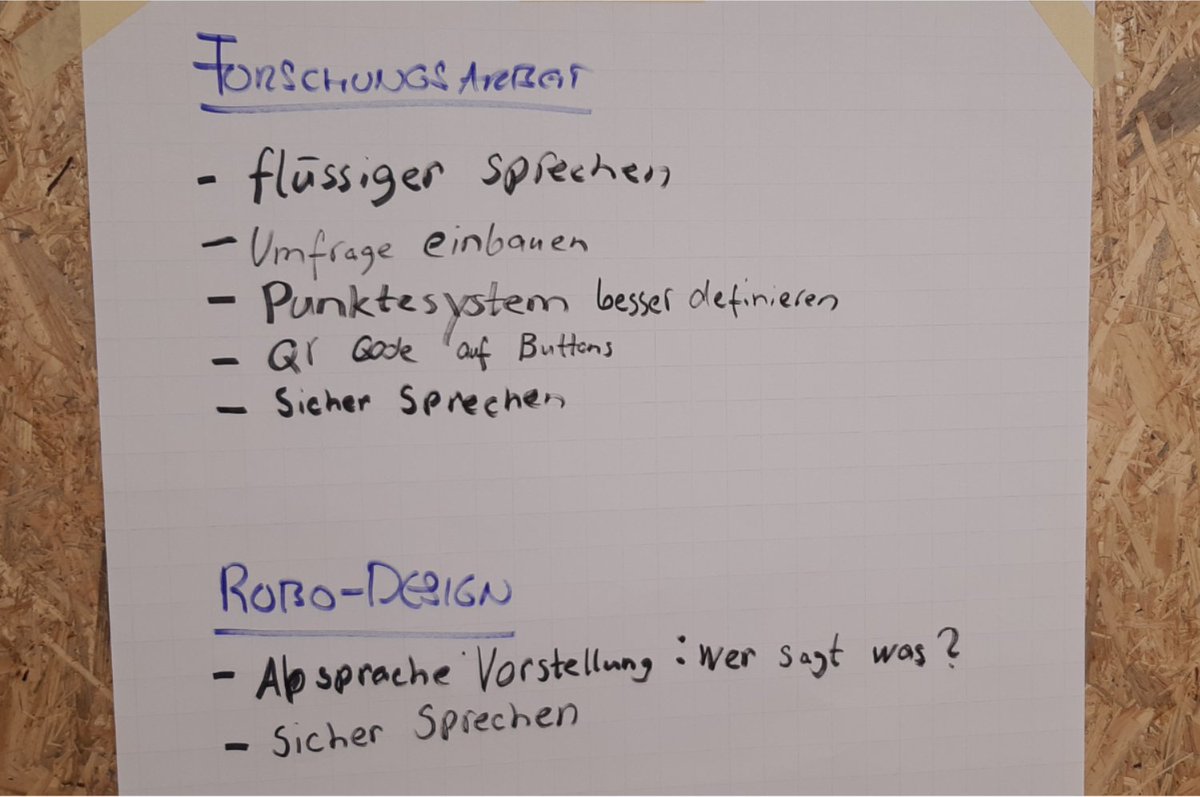 FORSCHUNGSARBEIT
- flüssiger sprechen
- Umfrage einbauen
- Punktesystem besser definieren
- Qr Qode auf Buttons
- Sicher Sprechen
ROBO-DESIGN
- Absprache Vorstellung: wer sagt was?
- Sicher Sprechen